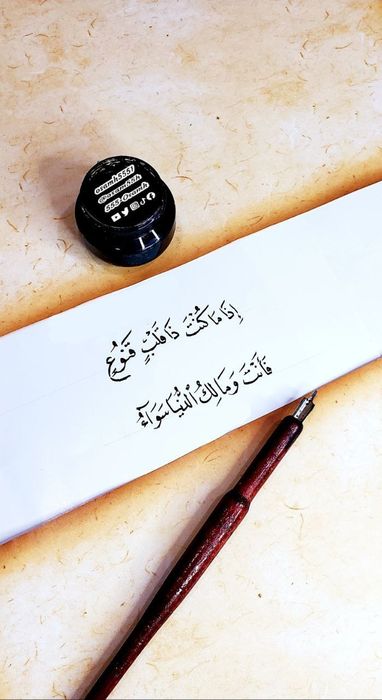 ozamh5551
@ozam55h
555-Ozamh
إِذَا مَا كُنْتَ ذَا قَلْبٍ قَنُوْعٍ
فَأَنْتَ وَمَالِكُ الْدُنْيَا سَوَآءُ